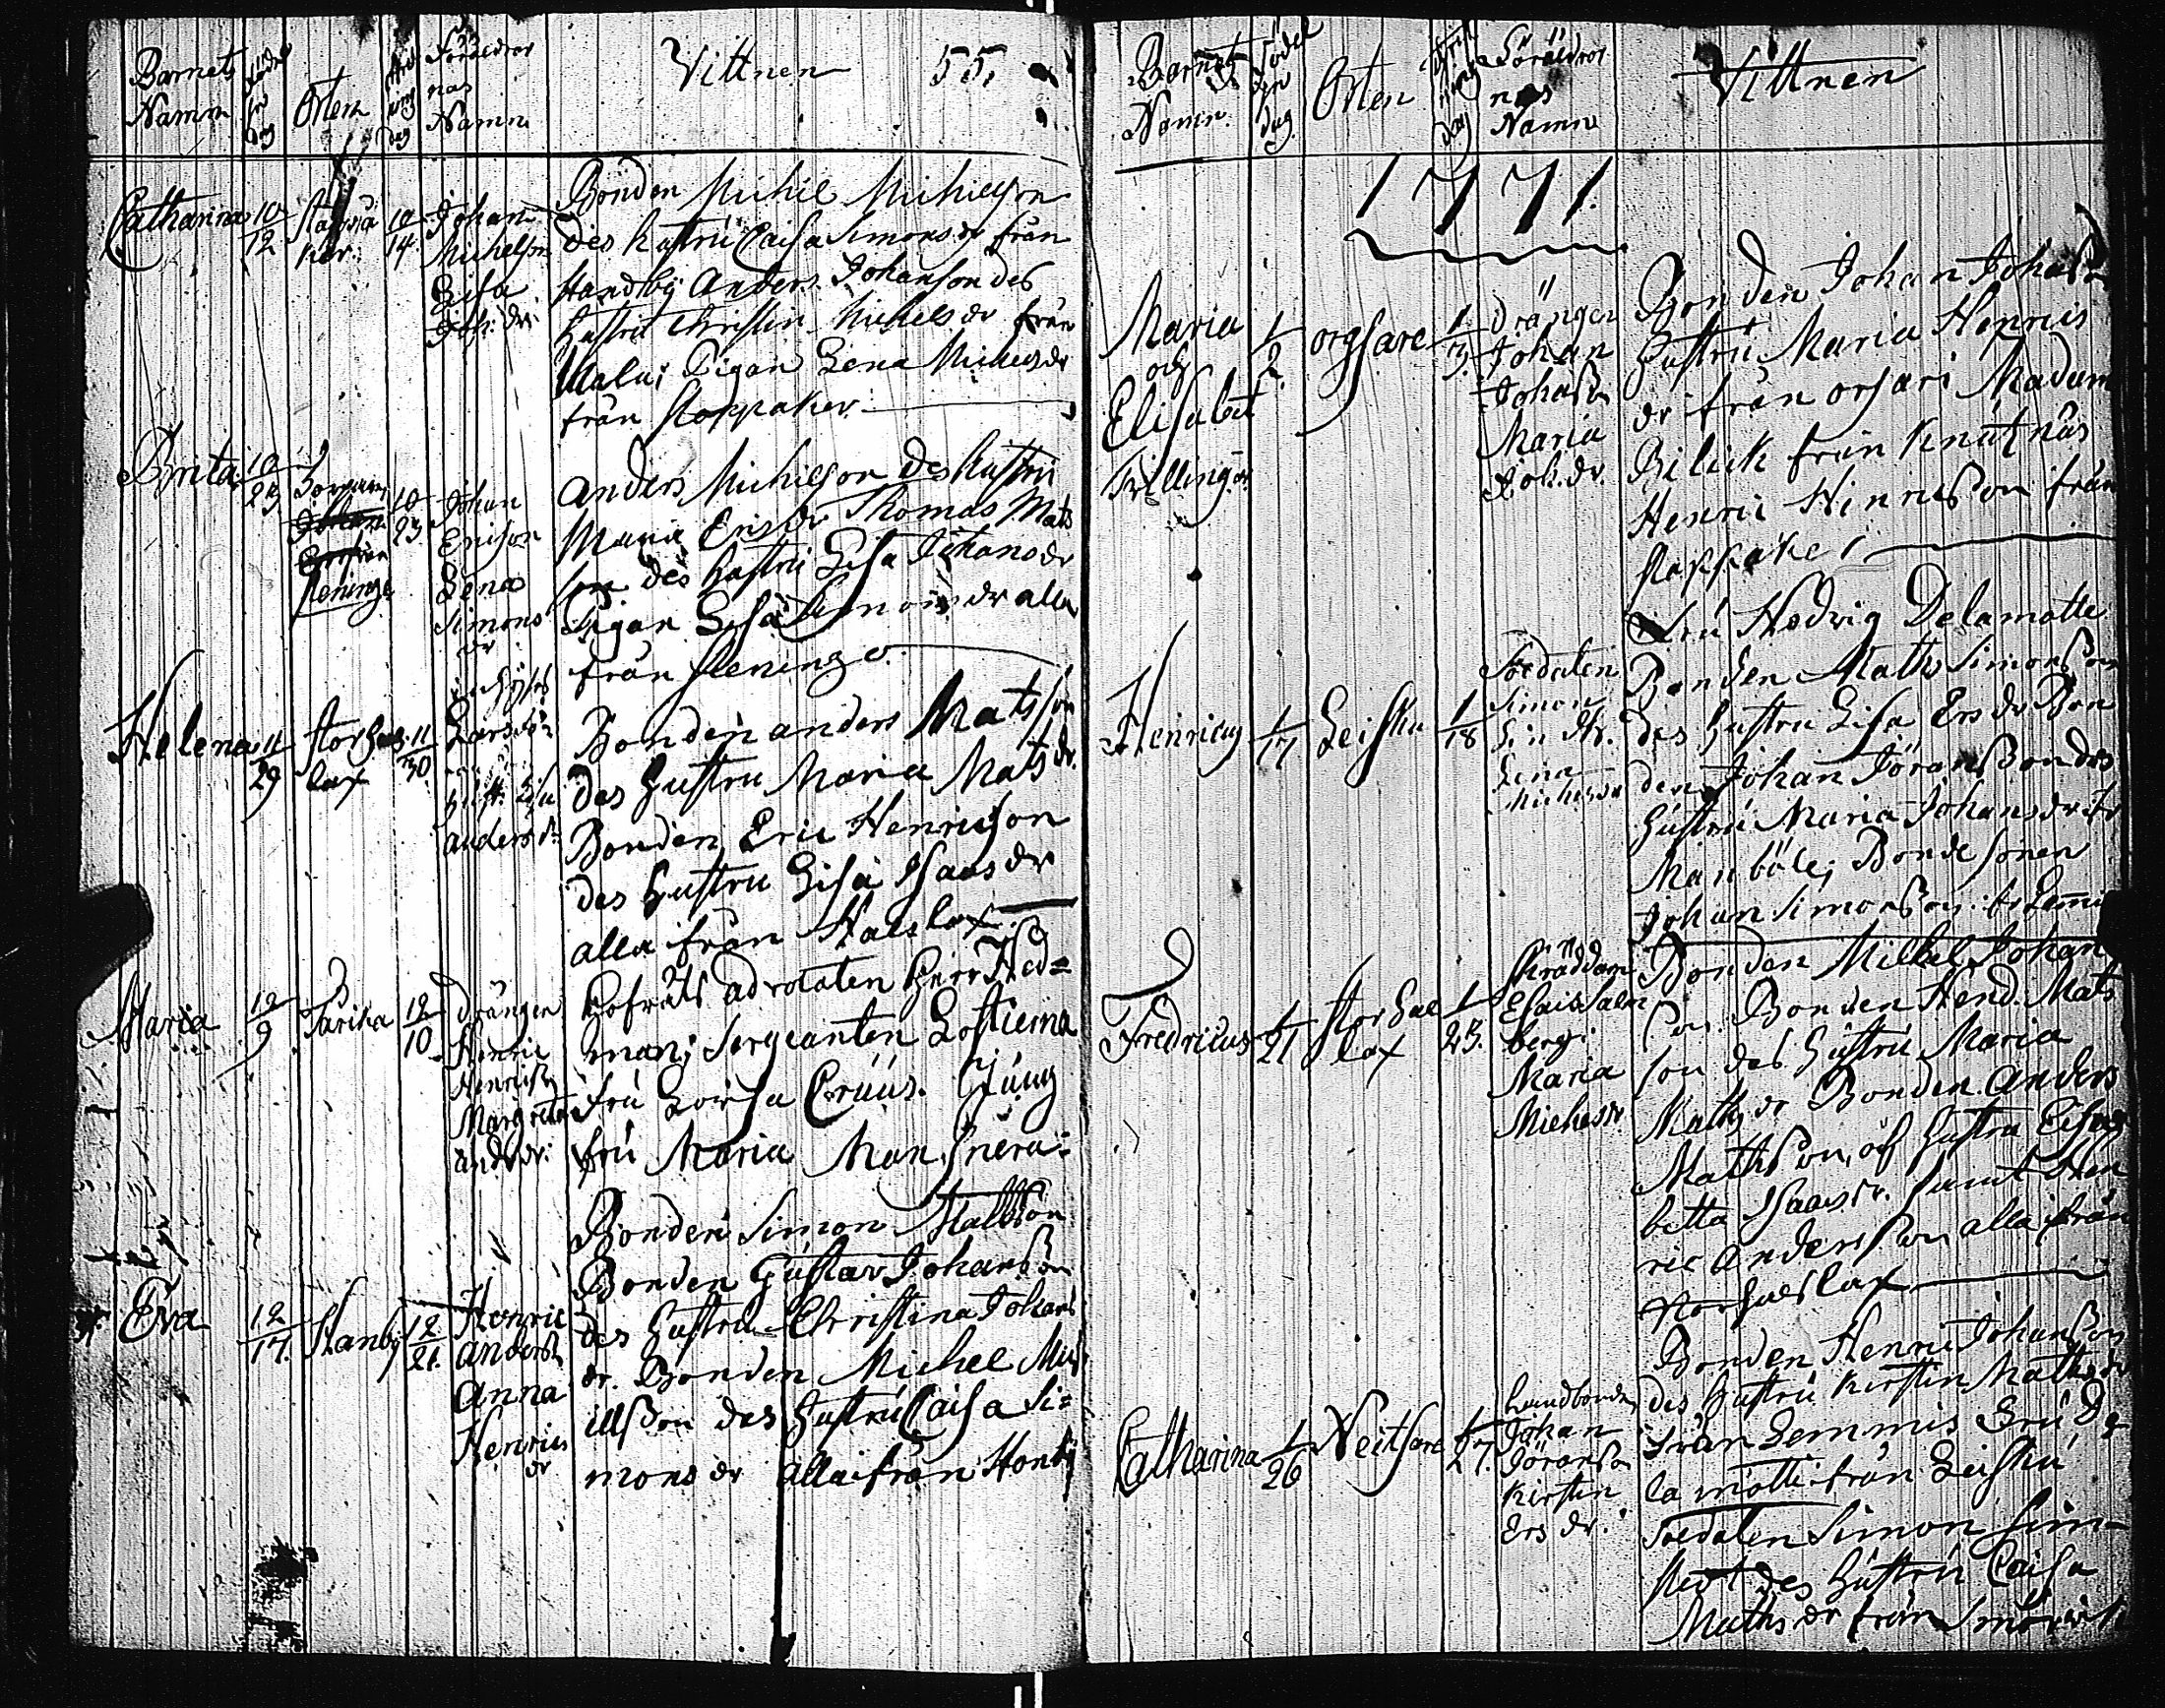 Barnets Namn
Födelse dag
Orten
Föräldrar nas Namn
Vittnen 55.
Catharina 10/12 10/14 Johan Michelson Lisa Joh: dr:
Bonden Michil Michilson
des hustru Caisa Simonsdr från
Handby Anders Johanson des
hustru Christin Michelsdr från
Pigan Lena Michelsdr
från Stoppaker
Brita 10/23 Heninge 10/23 Johan Ericson Lena Simons dr
Anders Michilson des hustru
Maria Ersdr Thomas Mats
son des hustru Lisa Johansdr
Pigan Lisa Simonsdr alla
från Heninge
Helena 11/29 Storhaslax 11/30 Larsson Hust. Lisa anders dr
Bonden anders Matsson
des hustru Maria Mats dr
Bonden Eric Henricson
des hustru Lisa Isaas dr
alla från Haslax
Maria 12/9 Tarika 12/10 drängen Henric Henricsn Margreta andr dr:
Hofräts advocaten Herr Hed=
man; Sergeanten Lostierna
fru Lovisa Crúús. Júng
frú Maria Man
Eva 12/17. Hanby 12/21. Henric andersn Anna Henrics dr
Bonden Simon Mattsson
Bonden Gústav Johansson
des hustru Christina Johans
dr. Bonden Michel Mich
ilsson des hustru Caisa Si=
mons dr alla från Hanby
Barnets Namn.
Födelse dag.
Orten
Föräldrar nas Namn
Vittnen
1771.
Maria och Elisabet Tvillingar 1/2 orgsare 1/3. drängen Johan Johasn Maria Joh. dr.
Bonden Johan Johasson
hustru Maria Henrics
dr från orsari Madam
Bilick från Knútnäs
Henric Hinricsson från
Stappaker
Henricus 1/17 Leisku 1/18 Soldaten Simon Lena Michelsdr
Frú Hedvig Delamotte
Bonden Matts Simonsson
des hustru Lisa Ers dr Bon
den Johan Jöransson des
hustrú Maria Johansdr fr
Manböle; Bonde sonen
Johan Simonsson: fr Lemmis
Fredricus 1/21 Storhaelax 1/23. Skräddaren Esaias Salmberg: Maria Michesdr
Bonden Mickel Johan
son Bonden Hend. Mats
son des hústrú Maria
Maths dr Bonden Anders
Mathsson, och hustru Elisa
betta Isaasdr. samt Hen
ric Andersson alla från
Storhaeslax
Catharina 1/26 Neitsare 1/27. Landbonden Johan Jöransson Kirstin Ers dr.
Bonden Henric Johansson
des hustru Kirstin Maths dr
från Lemmis Frú De
la motte från Leiskú
Soldaten Simon Sim-
des hústrú Caisa
Maths dr från